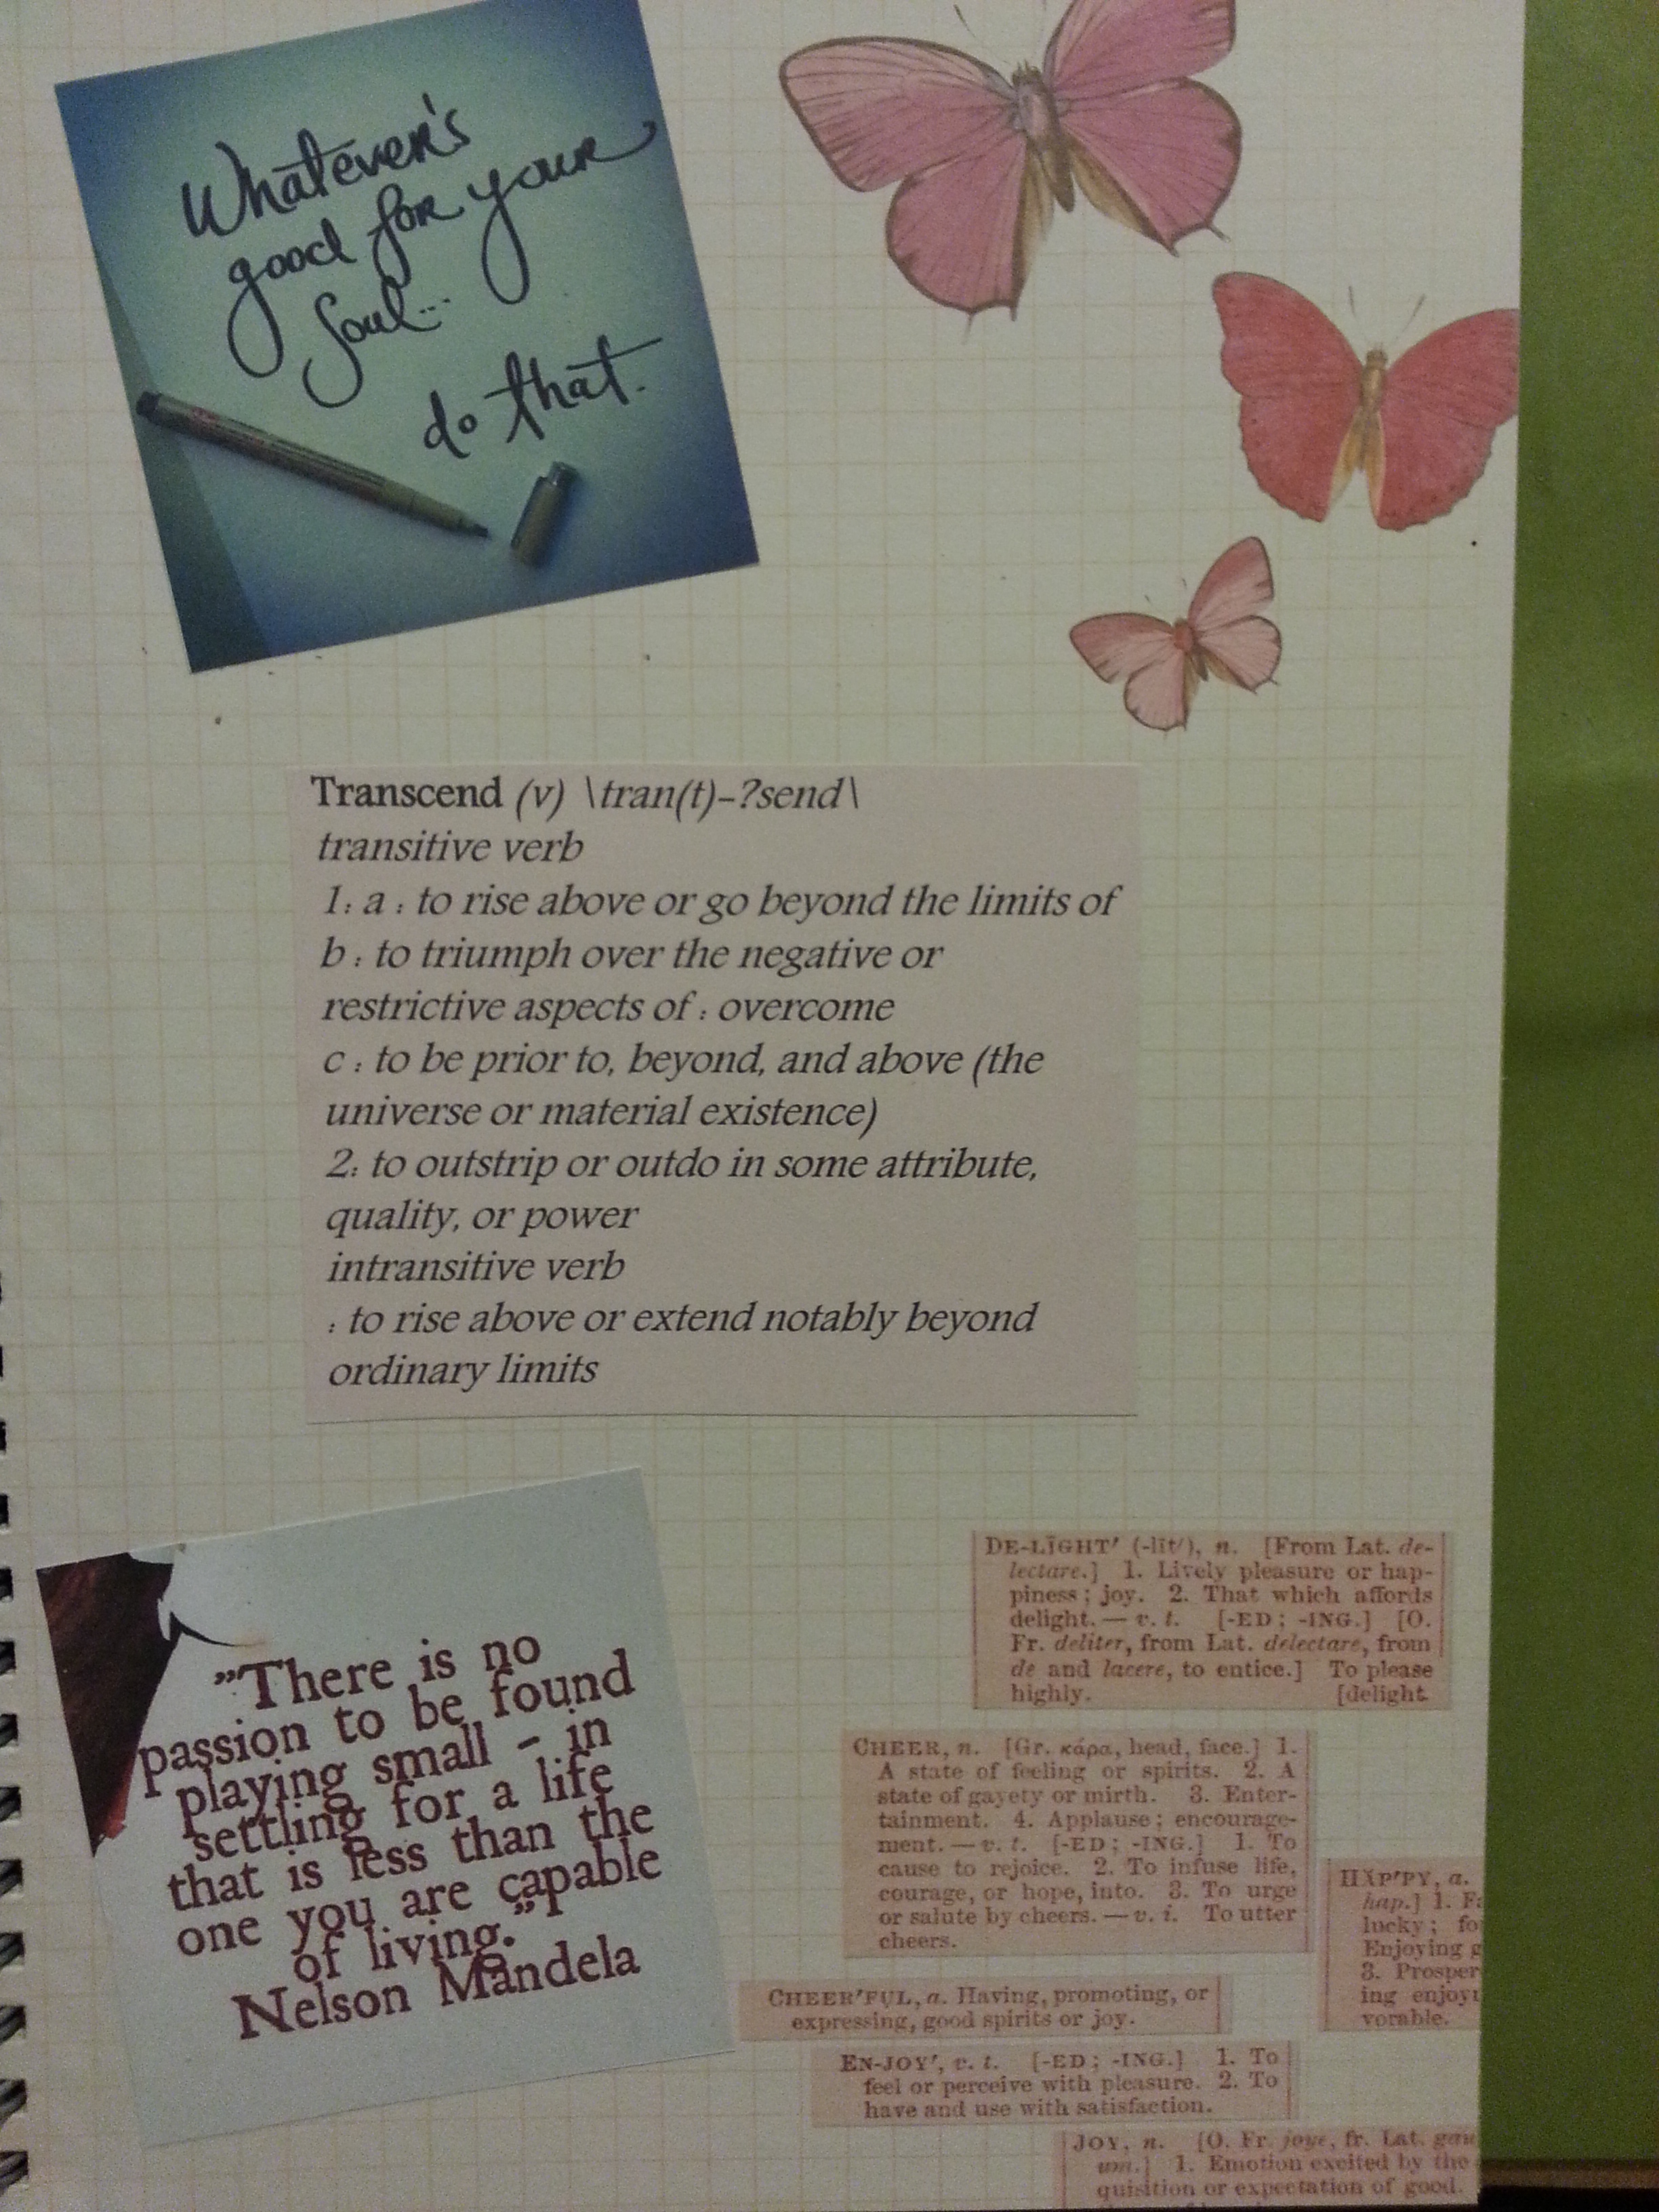 Whatever's
good for your
soul...
do that.
Transcend (v) \tran(t)-?send\
transitive verb
1: a : to rise above or go beyond the limits of
b : to triumph over the negative or
restrictive aspects of : overcome
c : to be prior to, beyond, and above (the
universe or material existence)
2: to outstrip or outdo in some attribute,
quality, or power
intransitive verb
: to rise above or extend notably beyond
ordinary limits
"There is no
passion to be found
playing small - in
settling for a life
that is less than the
one you are capable
of living."
Nelson Mandela
DE-LĪGHT' (-līt'), n. [From Lat. de-
lectare.] 1. Lively pleasure or hap-
piness; joy. 2. That which affords
delight. — v. t. [-ED; -ING.] [O.
Fr. deliter, from Lat. delectare, from
de and lacere, to entice.] To please
highly. [delight.
CHEER, n. [Gr. κάρα, head, face.] 1.
A state of feeling or spirits. 2. A
state of gayety or mirth. 3. Enter-
tainment. 4. Applause; encourage-
ment. — v. t. [-ED; -ING.] 1. To
cause to rejoice. 2. To infuse life,
courage, or hope, into. 3. To urge
or salute by cheers. — v. i. To utter
cheers.
HĂP'PY, a.
hap.] 1.
lucky;
Enjoying
3. Prosper
ing
vorable.
CHEER'FUL, a. Having, promoting, or
expressing, good spirits or joy.
EN-JOY', v. t. [-ED; -ING.] 1. To
feel or perceive with pleasure. 2. To
have and use with satisfaction.
JOY, n. [O. Fr. joye, fr. Lat. gau
um.] 1. Emotion excited by the
quisition or expectation of good.